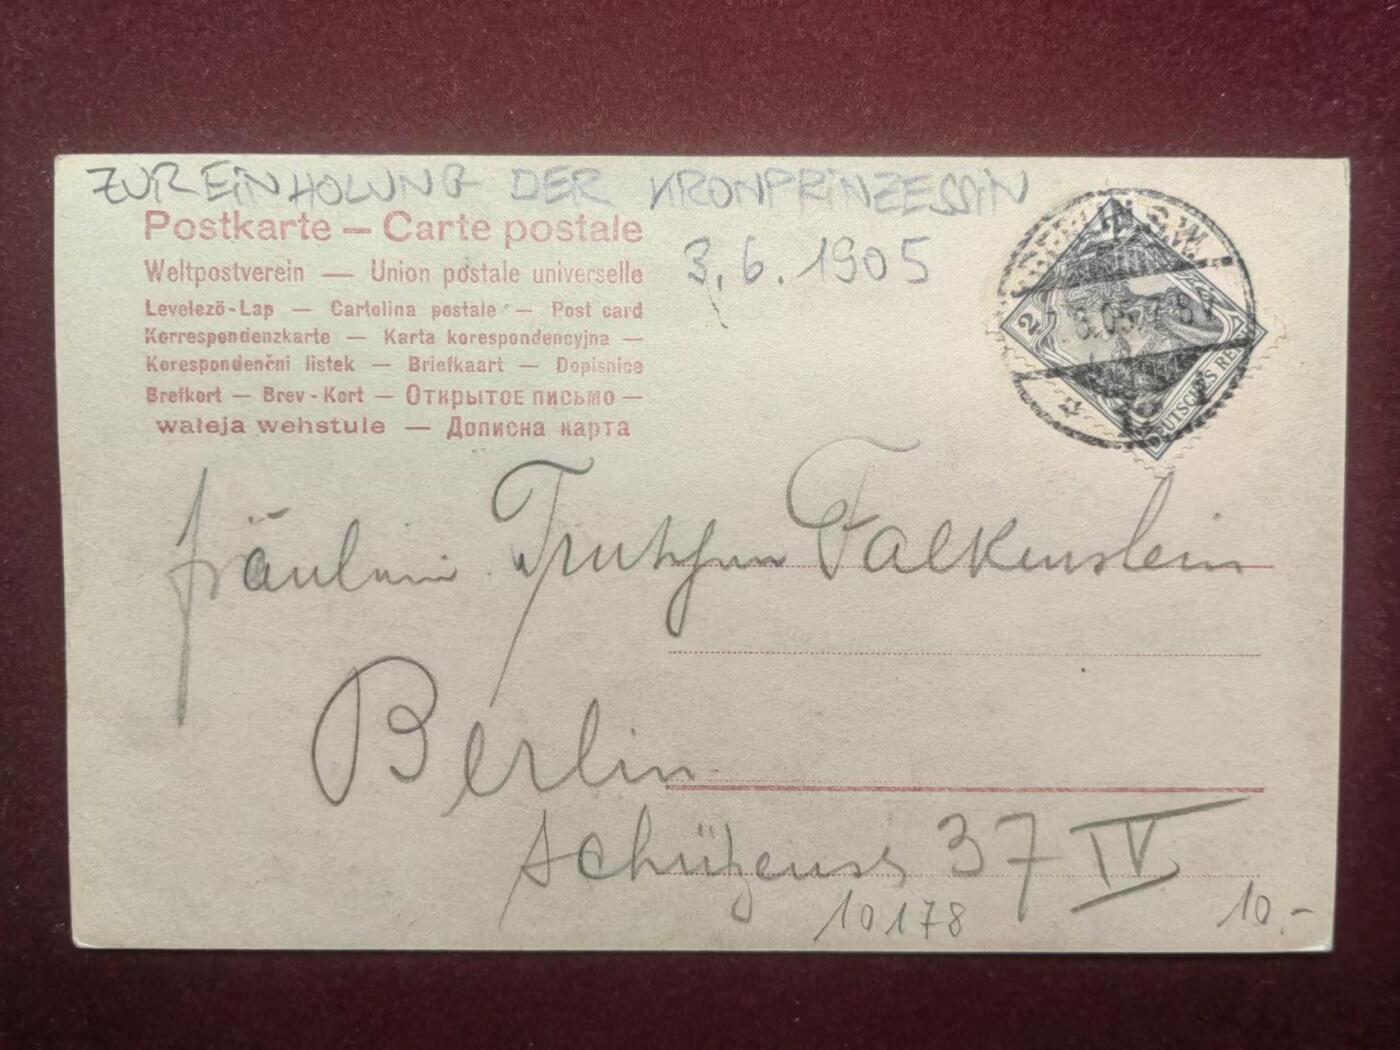 ZUR EINHOLUNG DER KRONPRINZESSIN
Postkarte — Carte postale
3.6.1905
Weltpostverein — Union postale universelle
Levelező-Lap — Cartolina postale — Post card
Korrespondenzkarte — Karta korespondencyjna —
Korespondenčni listek — Briefkaart — Dopisnice
Brefkort — Brev-Kort — Открытое письмо —
wałeja wehstule — Дописна карта
BERLIN S.W.
2
DEUTSCHES REICH
Fräulein Trutchen Falkenstein
Berlin
Schützenstr 37 IV
10178
10.-